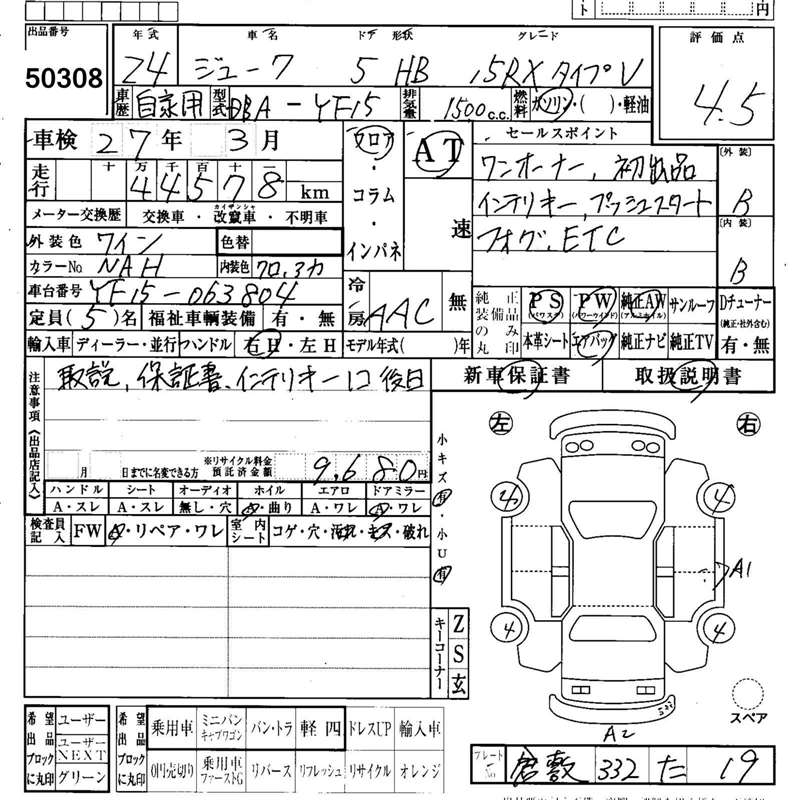 ト 円
出品番号 年式 車名 ドア 形状 グレード 評価点
50308 24 ジューク 5 HB 15RX タイプV 4.5
車歴 自家用 型式 DBA-YF15 排気量 1500c.c. 燃料 ガソリン・( )・軽油
車検 27年 3月 フロア AT セールスポイント [外装]
走行 十 万 千 百 十 一 44578 km ・コラム・ ワンオーナー、初出品 B
メーター交換歴 交換車・改竄車・不明車 カイザンシャ インパネ 速 インテリキー、プッシュスタート [内装]
外装色 ワイン 色替 フォグ、ETC B
カラーNo NAH 内装色 クロ、3カ
車台番号 YF15-063804 冷房 AAC 無 純正装備品の み丸印 PS (パワステ) PW (パワーウインド) 純正AW (アルミホイル) サンルーフ Dチューナー (純正・社外含む)
定員(5)名 福祉車輌装備 有・無 本革シート エアバッグ 純正ナビ 純正TV 有・無
輸入車 ディーラー・並行 ハンドル 右H・左H モデル年式( )年
注意事項(出品店記入) 取説、保証書、インテリキー1コ 後日 新車保証書 取扱説明書
月 日までに名変できる方 ※リサイクル料金預託済金額 9,680円
小キズ有・小U有
左 右
ハンドル シート オーディオ ホイル エアロ ドアミラー
A・スレ A・スレ 無し・穴 A・曲り A・ワレ A・ワレ
検査員記入 FW A・リペア・ワレ 室内シート コゲ・穴・汚れ・キズ・破れ
4 4
A1
4 4
キーコーナー Z S 玄
スペア
A2
希望出品ブロックに丸印 ユーザー ユーザーNEXT グリーン
希望出品ブロックに丸印 乗用車 ミニバンキャブワゴン バン・トラ 軽四 ドレスUP 輸入車
0円売切り 乗用車ファーストG リバース リフレッシュ リサイクル オレンジ
プレートNo 倉敷 332 た 19